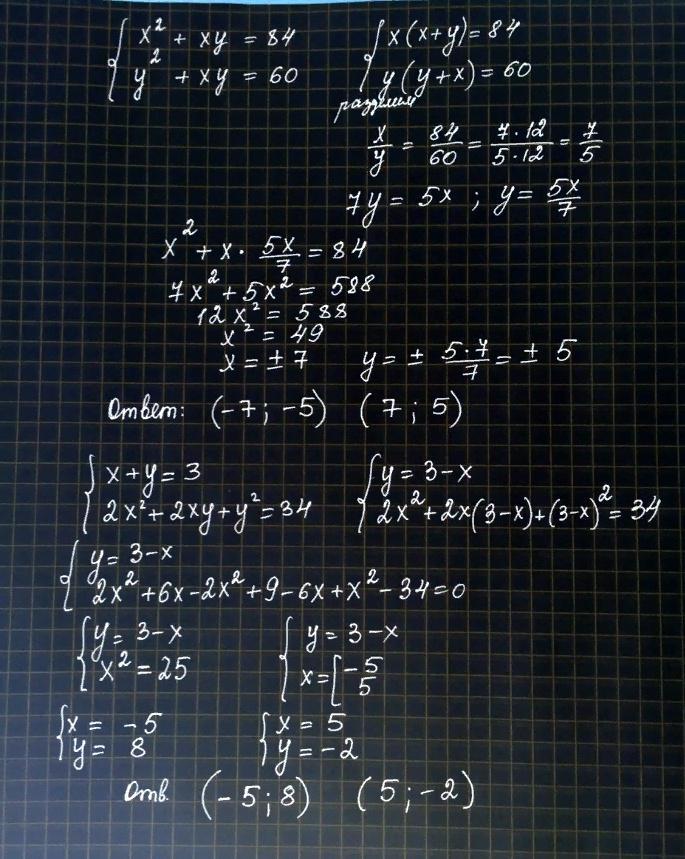 { x² + xy = 84   { x(x+y) = 84
{ y² + xy = 60   { y(y+x) = 60
разделим
x/y = 84/60 = 7·12/5·12 = 7/5
7y = 5x ; y = 5x/7
x² + x · 5x/7 = 84
7x² + 5x² = 588
12x² = 588
x² = 49
x = ± 7   y = ± 5·7/7 = ± 5
Ответ: (-7 ; -5)   (7 ; 5)
{ x + y = 3   { y = 3 - x
{ 2x² + 2xy + y² = 34   { 2x² + 2x(3-x) + (3-x)² = 34
{ y = 3 - x
{ 2x² + 6x - 2x² + 9 - 6x + x² - 34 = 0
{ y = 3 - x   { y = 3 - x
{ x² = 25   { x = [ -5
5
{ x = -5   { x = 5
{ y = 8   { y = -2
Отв. (-5 ; 8)   (5 ; -2)